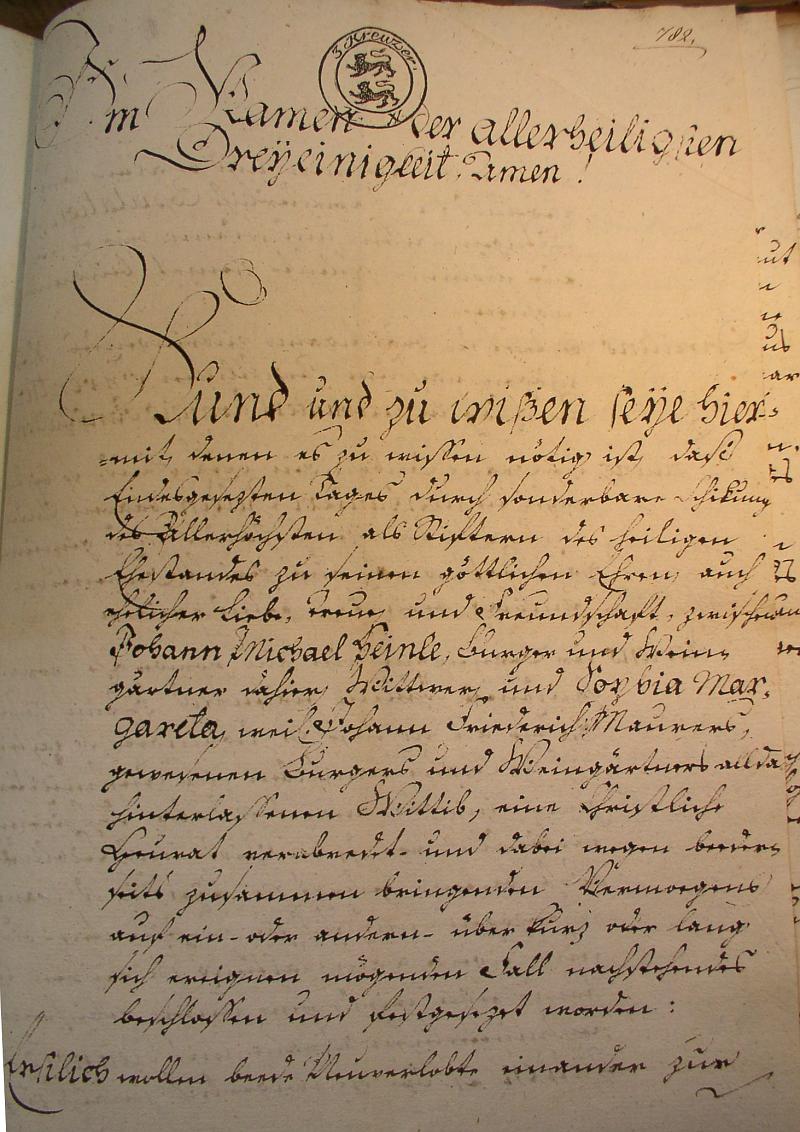 3 Kreuzer.
782.
Im Namen der allerheiligsten
Dreÿeinigkeit, Amen!
Kund und zu wißen seÿe hier=
=mit, denen es zu wissen nötig ist, daß
Endesgesezten Tages durch sonderbare Schikung
des Allerhöchsten als Stiftern des heiligen
Ehestandes zu seinen göttlichen Ehren, auch
ehelicher Liebe, Treue, und Freundschaft, zwischen
Johann Michael Heinle, Burger und Wein=
gärtner dahier, Wittwer, und Sophia Mar=
gareta, weil. Johann Friederich Maurers,
gewesenen Burgers und Weingärtners allda
hinterlassenen Wittib, eine Christliche
Heurat verabredt- und dabei wegen beeder=
seits zusammen bringenden Vermoegens
auf ein- oder andern- über kurz oder lang
sich ereignen mögenden Fall nachstehendes
beschlossen und festgesezet worden:
Erstlich wollen beede Neuverlobte einander zur